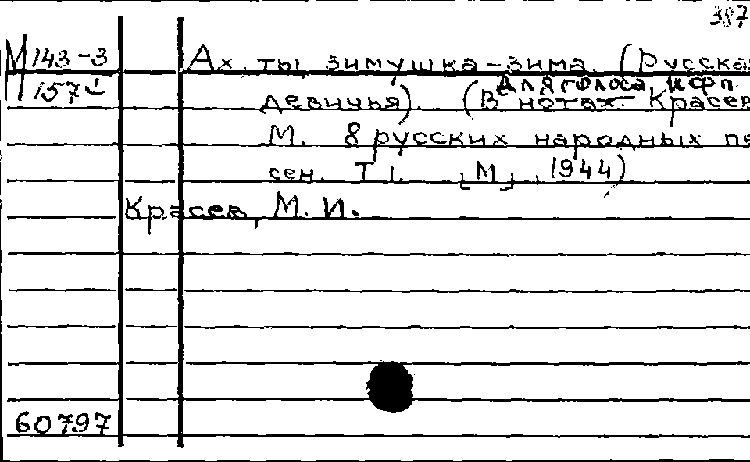 387
М 143-3 Ах, ты, зимушка-зима. (Русская
157
для голоса и фп
девичья). (В нотах Красев
М. 8 русских народных пе
сен. Т I. [М], 1944)
Красев, М. И.
60797